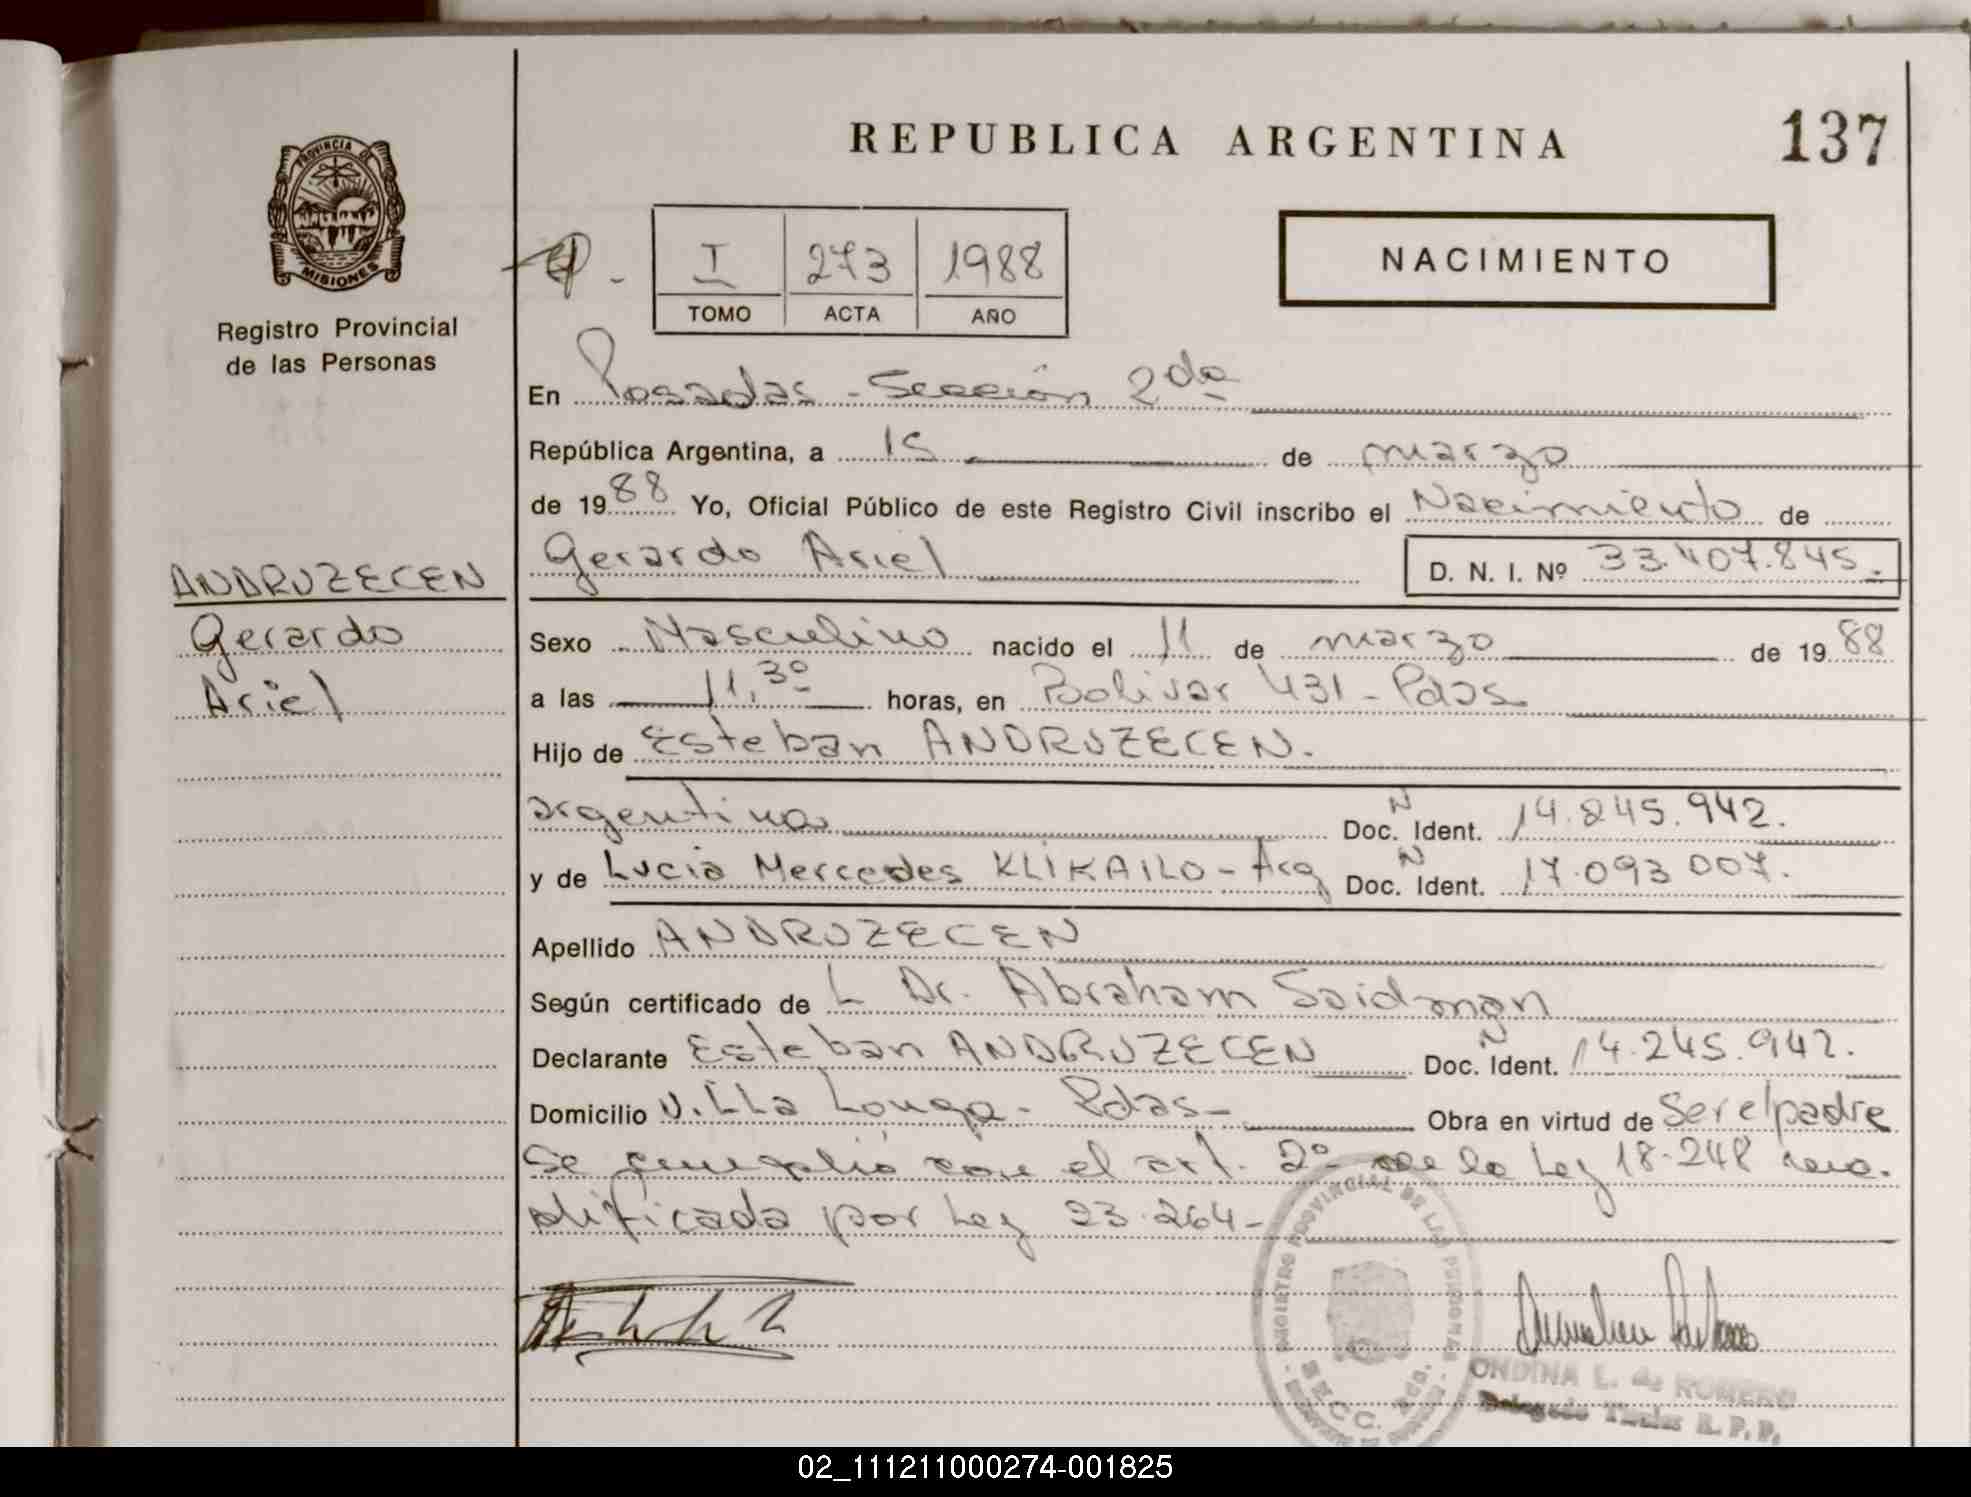 REPUBLICA ARGENTINA
137
PROVINCIA DE
MISIONES
Registro Provincial
de las Personas
I 273 1988
TOMO ACTA AÑO
NACIMIENTO
En Posadas - Sección 2da
República Argentina, a 15 de marzo
de 1988 Yo, Oficial Público de este Registro Civil inscribo el Nacimiento de
Gerardo Ariel D. N. I. Nº 33.407.845.
ANDRUZECEN
Gerardo
Ariel
Sexo Masculino nacido el 11 de marzo de 1988
a las 11,30 horas, en Bolivar 431 - Pdas
Hijo de Esteban ANDRUZECEN.
argentina N Doc. Ident. 14.245.942.
y de Lucia Mercedes KLIKAILO - Arg N Doc. Ident. 17.093.007.
Apellido ANDRUZECEN
Según certificado de L Dr. Abraham Saidman
Declarante Esteban ANDRUZECEN N Doc. Ident. 14.245.942.
Domicilio Villa Longa - Pdas - Obra en virtud de Ser el padre
Se cumplió con el art. 2º de la Ley 18.248 mo
dificada por Ley 23.264 -
REGISTRO PROVINCIAL DE LAS PERSONAS
SECC. 2da.
ONDINA L. de ROMERO
Delegado Titular R. P. P.
02_111211000274-001825